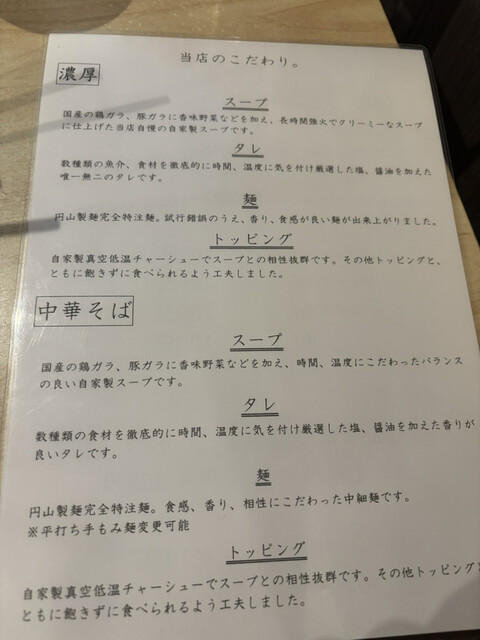 当店のこだわり。
濃厚
スープ
国産の鶏ガラ、豚ガラに香味野菜などを加え、長時間強火でクリーミーなスープ
に仕上げた当店自慢の自家製スープです。
タレ
数種類の魚介、食材を徹底的に時間、温度に気を付け厳選した塩、醤油を加えた
唯一無二のタレです。
麺
円山製麺完全特注麺。試行錯誤のうえ、香り、食感が良い麺が出来上がりました。
トッピング
自家製真空低温チャーシューでスープとの相性抜群です。その他トッピングと、
ともに飽きずに食べられるよう工夫しました。
中華そば
スープ
国産の鶏ガラ、豚ガラに香味野菜などを加え、時間、温度にこだわったバランス
の良い自家製スープです。
タレ
数種類の食材を徹底的に時間、温度に気を付け厳選した塩、醤油を加えた香りが
良いタレです。
麺
円山製麺完全特注麺。食感、香り、相性にこだわった中細麺です。
※平打ち手もみ麺変更可能
トッピング
自家製真空低温チャーシューでスープとの相性抜群です。その他トッピングと
ともに飽きずに食べられるよう工夫しました。